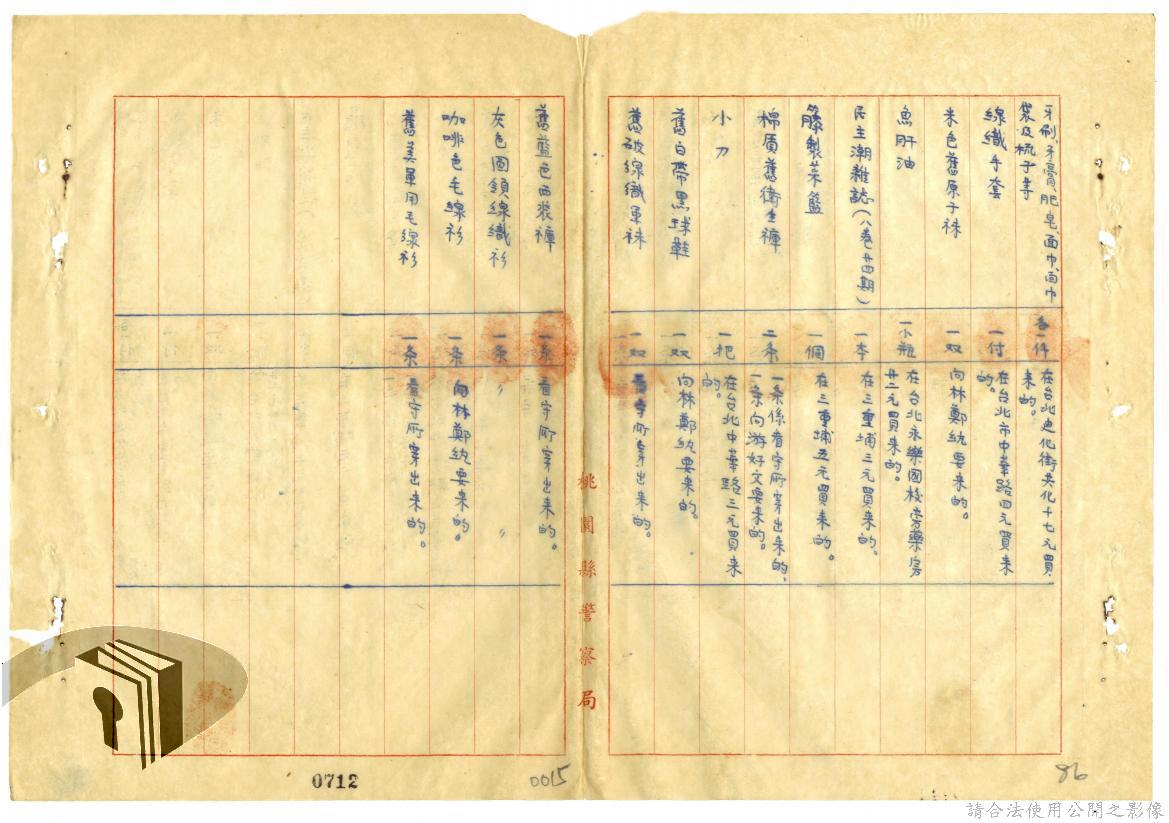 牙刷、牙膏、肥皂、面巾、面巾
袋及梳子等
各一件
在台北迪化街共化十七元買
来的。
線織手套
一付
在台北市中華路四元買来
的。
米色舊原子袜
一双
向林鄭紈要来的。
魚肝油
一小瓶
在台北永樂國校旁藥房
廿二元買来的。
民主潮雜誌（八卷廿四期）
一本
在三重埔三元買来的。
籐製菜籃
一個
在三重埔五元買来的。
棉質舊衛生褲
二条
一条係看守所穿出来的、
一条向游好文要来的。
小刀
一把
在台北中華路三元買来
的。
舊白帶黑球鞋
一双
向林鄭紈要来的。
舊破線織軍袜
一双
看守所穿出来的。
桃園縣警察局
舊藍色西装褲
一条
看守所穿出来的。
灰色圓領線織衫
一条
〃 〃
咖啡色毛線衫
一条
向林鄭紈要来的。
舊美軍用毛線衫
一条
看守所穿出来的。
0712
0015
86
請合法使用公開之影像